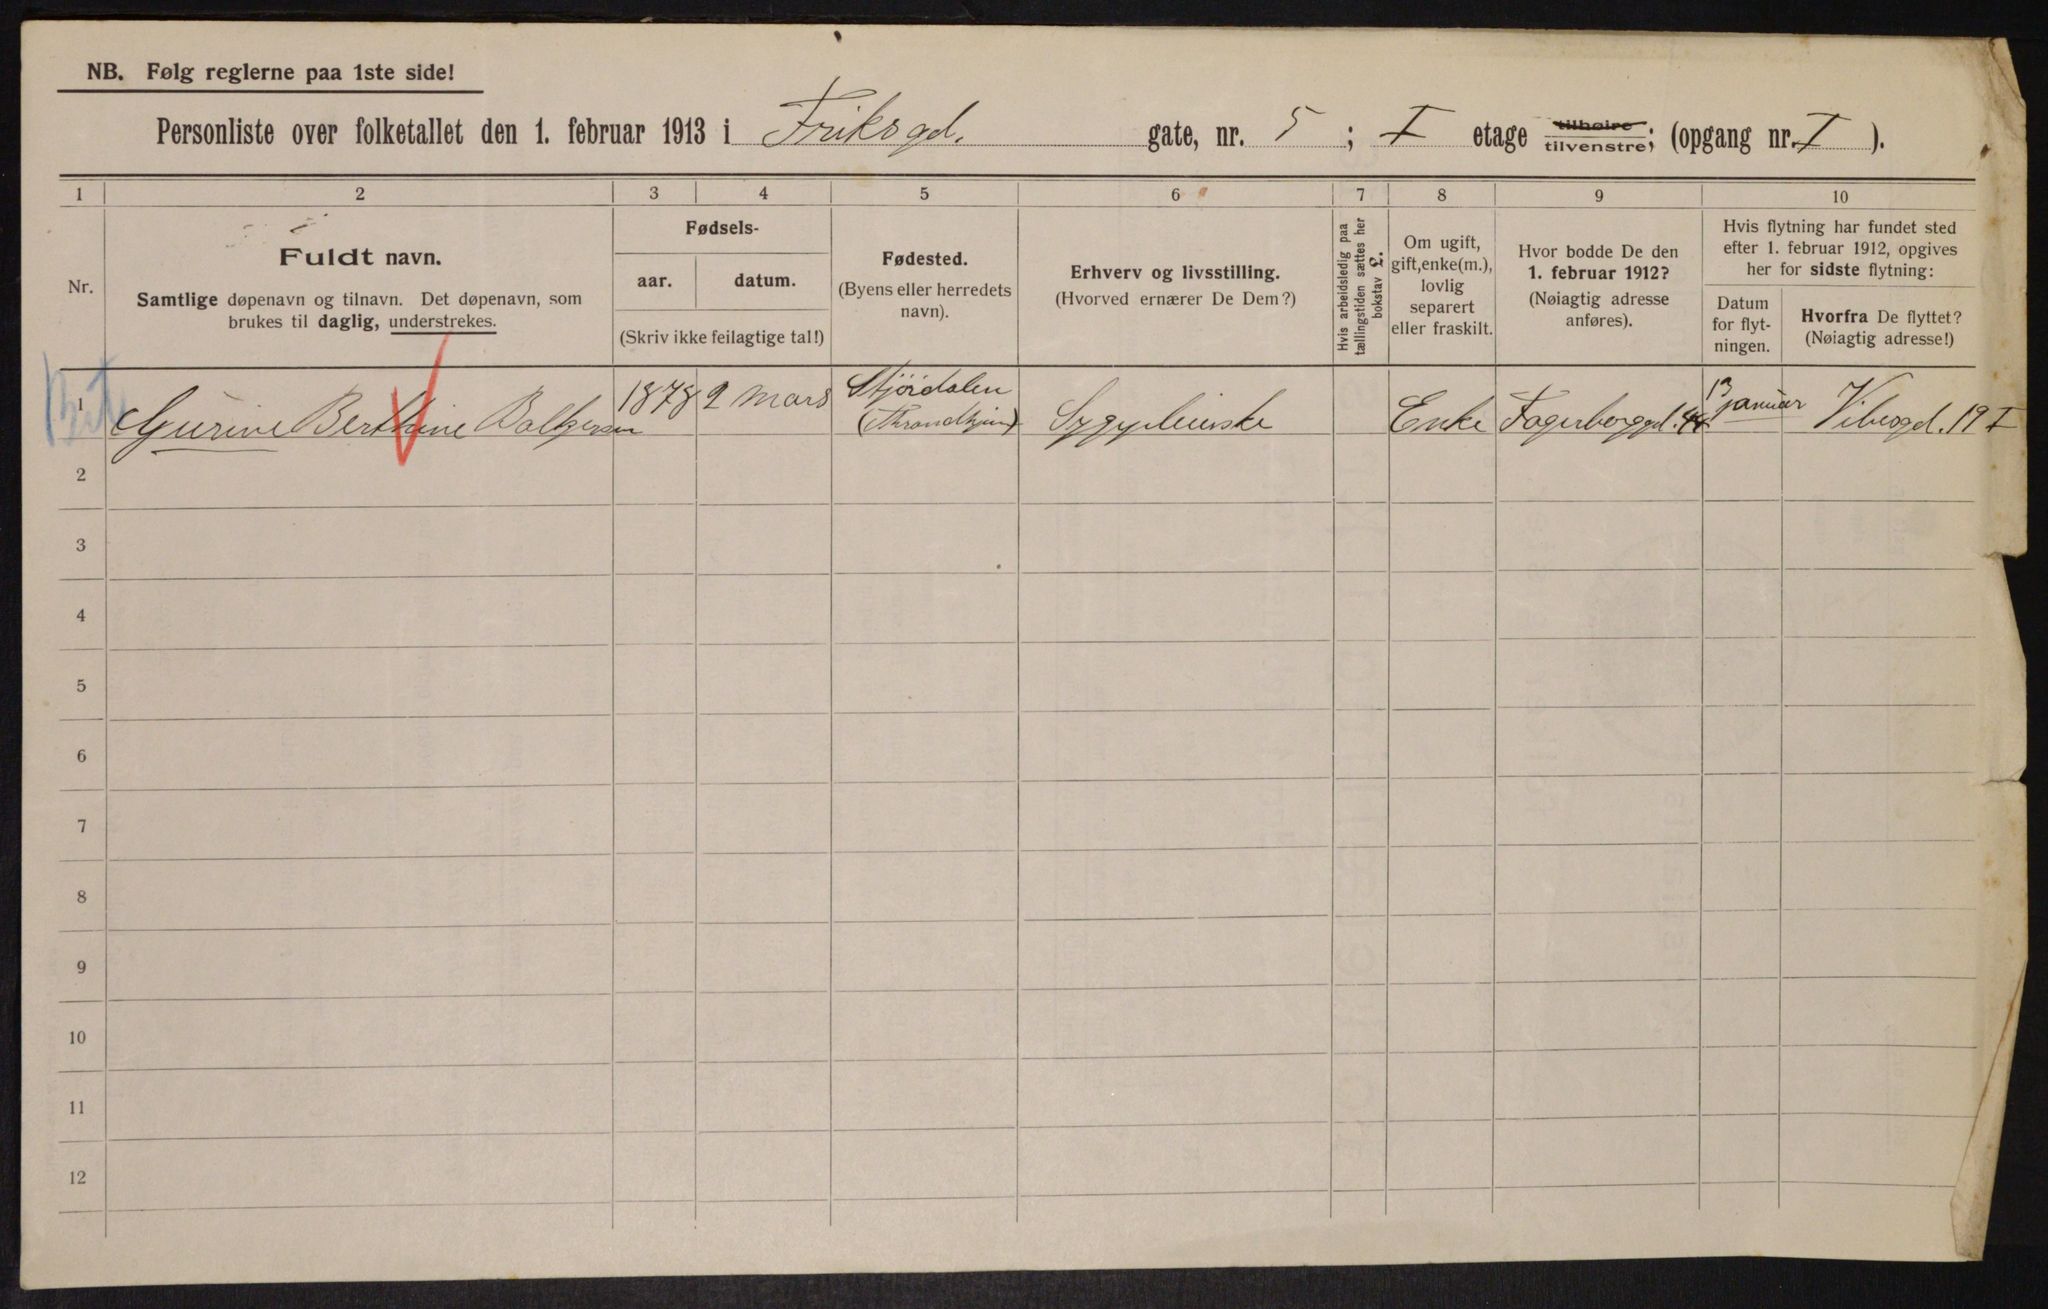 NB. Følg reglerne paa 1ste side!
Personliste over folketallet den 1. februar 1913 i Friksgd. gate, nr. 5 ; I etage tilhøire tilvenstre; (opgang nr. I ).
1 2 3 4 5 6 7 8 9 10
Nr.
Fuldt navn.
Samtlige døpenavn og tilnavn. Det døpenavn, som
brukes til daglig, understrekes.
Fødsels-
aar. datum.
(Skriv ikke feilagtige tal!)
Fødested.
(Byens eller herredets
navn).
Erhverv og livsstilling.
(Hvorved ernærer De Dem?)
Hvis arbeidsledig paa
tællingstiden sættes her
bokstav l.
Om ugift,
gift, enke(m.),
lovlig
separert
eller fraskilt.
Hvor bodde De den
1. februar 1912?
(Nøiagtig adresse
anføres).
Hvis flytning har fundet sted
efter 1. februar 1912, opgives
her for sidste flytning:
Datum
for flyt-
ningen.
Hvorfra De flyttet?
(Nøiagtig adresse!)
1 Gurine Berthine 1878 2 mars Stjørdalen (Throndhjem) Sygepleierske Enke Fagerborggd. 13 januar Vibesgd. 19 I
2
3
4
5
6
7
8
9
10
11
12